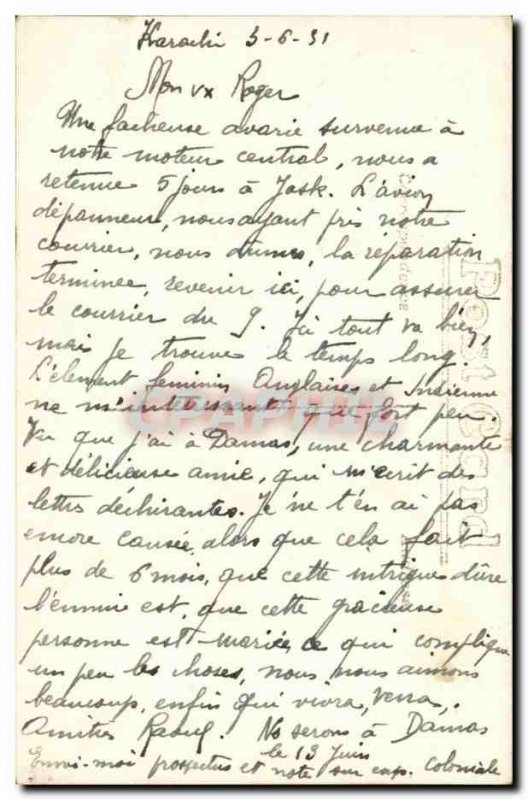 Karachi 3-6-31
Mon vx Roger
Une facheuse avarie survenue à
notre moteur central, nous a
retenue 5 jours à Jask. L'avion
dépanneur, nous ayant pris notre
courrier, nous dumes, la réparation
terminée, revenir ici, pour assurer
le courrier du 9. Ici tout va bien,
mais je trouve le temps long.
L'élement feminin Anglaises et Indienne
ne m'interessant que fort peu.
Vu que j'ai à Damas, une charmante
et délicieuse amie, qui m'ecrit des
lettres déchirantes. Je ne t'en ai pas
encore causée, alors que cela fait
plus de 6 mois, que cette intrigue dure
l'ennui est, que cette gracieuse
personne est mariée ce qui complique
un peu les choses, nous nous aimons
beaucoup, enfin qui vivra, verra.
Amities Raoul. Ns serons à Damas
le 13 Juin
Envoi-moi prospectus et note sur exp. Coloniale
Post Card
CPAPHIL